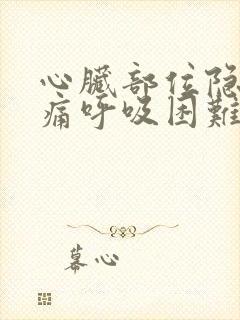 心臟部位隐
痛呼吸困難
慕心